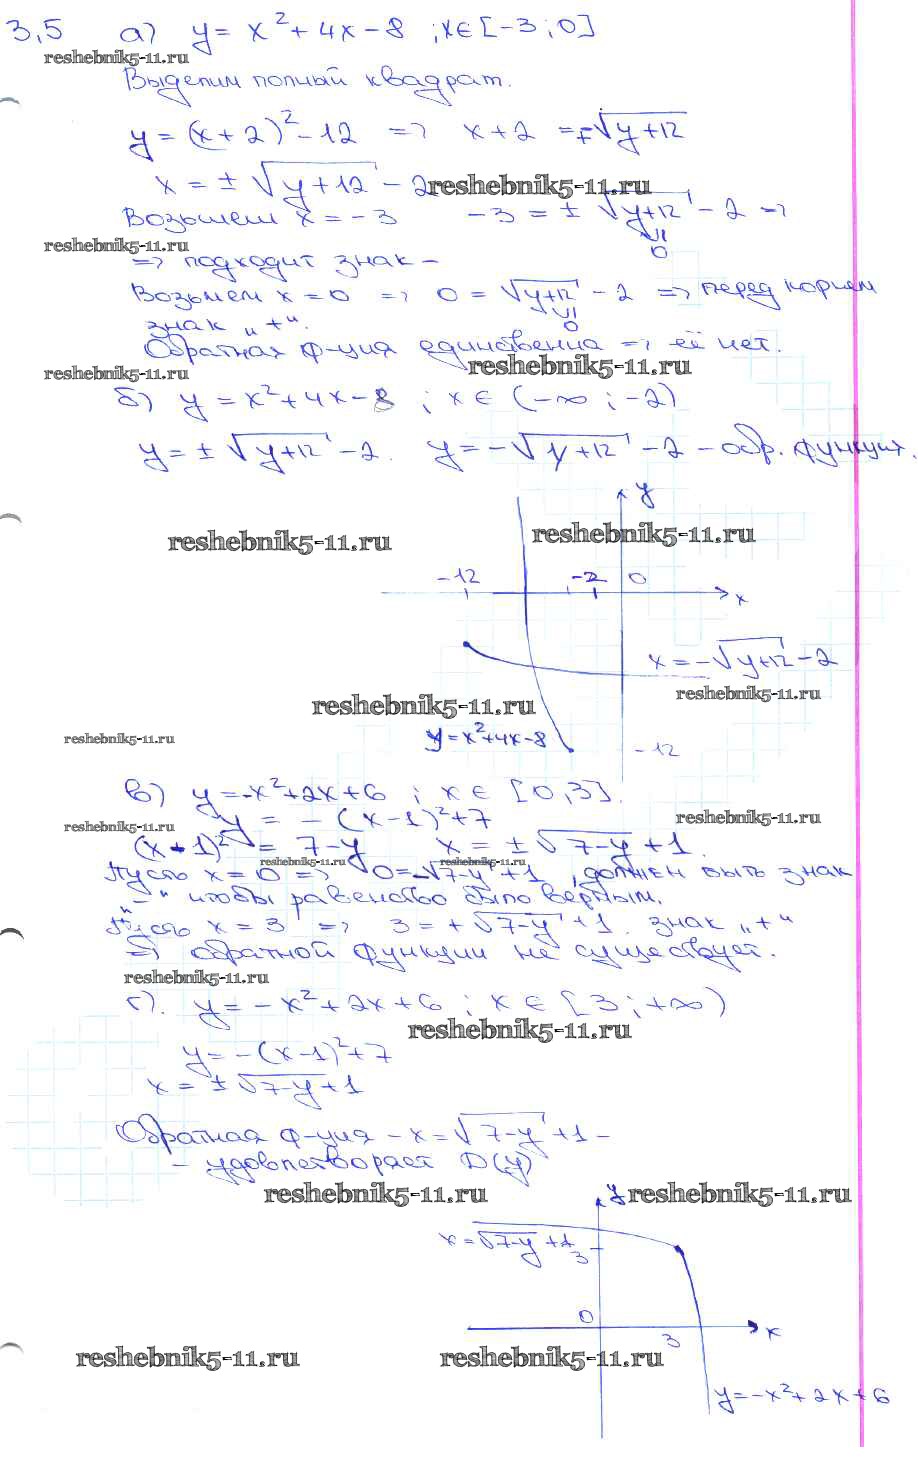 3,5 а) y = x² + 4x - 8 ; x ∈ [-3 ; 0]
reshebnik5-11.ru
Выделим полный квадрат.
y = (x + 2)² - 12 => x + 2 = ∓√(y + 12)
x = ± √(y + 12) - 2
reshebnik5-11.ru
Возьмем x = -3 -3 = ± √(y+12) - 2 =>
0
reshebnik5-11.ru
=> подходит знак -
Возьмем x = 0 => 0 = √(y+12) - 2 => перед корнем
0
знак „+“.
Обратная ф-ция единственна => её нет.
reshebnik5-11.ru reshebnik5-11.ru
б) y = x² + 4x - 8 ; x ∈ (-∞ ; -2)
y = ± √(y+12) - 2. y = -√(y+12) - 2 - обр. функция.
y
reshebnik5-11.ru reshebnik5-11.ru
-12 -2 0
x
x = -√(y+12) - 2
reshebnik5-11.ru reshebnik5-11.ru
reshebnik5-11.ru y = x² + 4x - 8 -12
в) y = -x² + 2x + 6 ; x ∈ [0, 3].
y = - (x - 1)² + 7 reshebnik5-11.ru
reshebnik5-11.ru
(x - 1)² = 7 - y x = ± √(7 - y) + 1.
reshebnik5-11.ru reshebnik5-11.ru
Пусть x = 0 => 0 = -√(7-y) + 1, должен быть знак
„-“ чтобы равенство было верным.
Пусть x = 3 => 3 = + √(7-y) + 1. знак „+“
=> обратной функции не существует.
reshebnik5-11.ru
г). y = -x² + 2x + 6 ; x ∈ [3 ; +∞)
reshebnik5-11.ru
y = -(x - 1)² + 7
x = ± √(7-y) + 1
Обратная ф-ция - x = √(7-y) + 1 -
- удовлетворяет D(y)
reshebnik5-11.ru y reshebnik5-11.ru
x = √(7-y) + 1
3
0
3 x
reshebnik5-11.ru reshebnik5-11.ru
y = -x² + 2x + 6